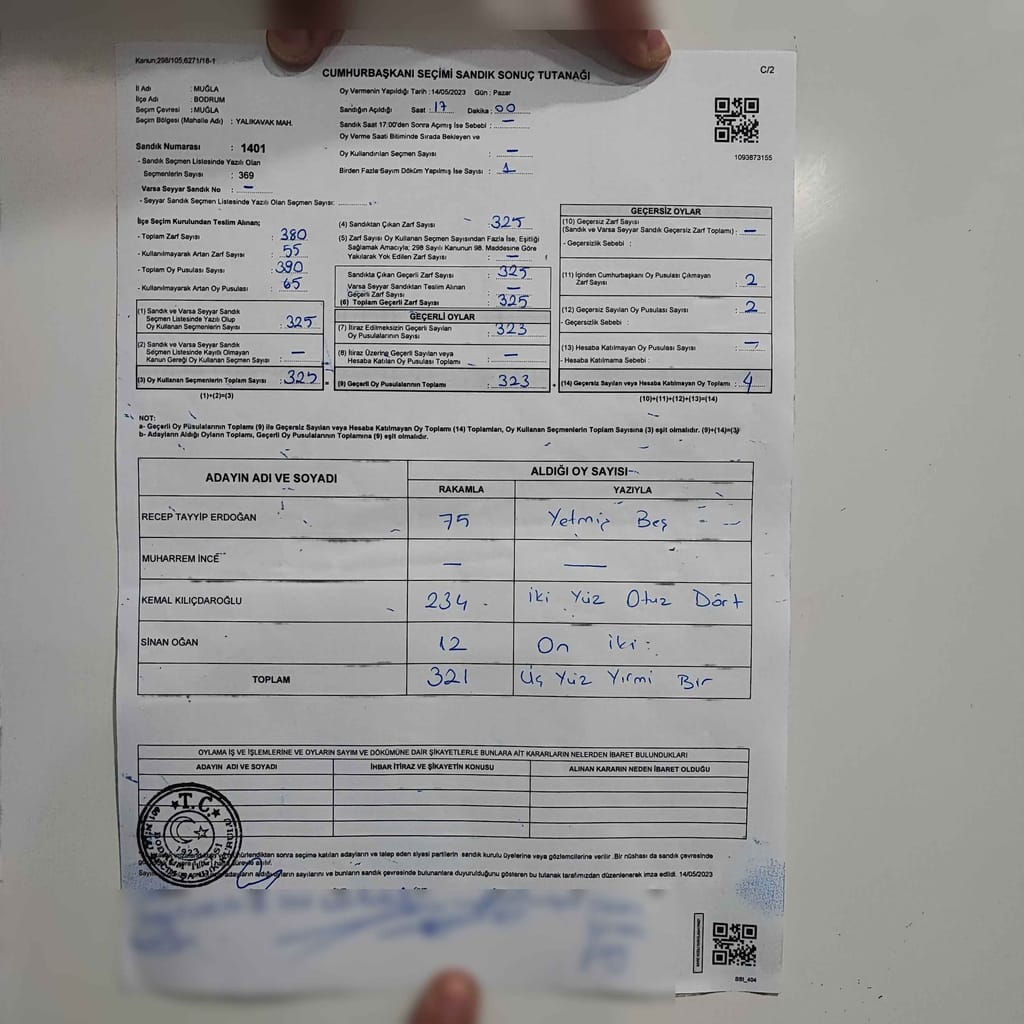 Kanun;298/105,6271/18-1
CUMHURBAŞKANI SEÇİMİ SANDIK SONUÇ TUTANAĞI
C/2
İl Adı : MUĞLA
İlçe Adı : BODRUM
Seçim Çevresi : MUĞLA
Seçim Bölgesi (Mahalle Adı) : YALIKAVAK MAH.
Oy Vermenin Yapıldığı Tarih : 14/05/2023 Gün : Pazar
Sandığın Açıldığı Saat : 17 Dakika : 00
Sandık Saat 17:00'den Sonra Açımış İse Sebebi : —
Oy Verme Saati Bitiminde Sırada Bekleyen ve
Oy Kullandırılan Seçmen Sayısı : —
Birden Fazla Sayım Döküm Yapılmış İse Sayısı : 1
1093873155
Sandık Numarası : 1401
- Sandık Seçmen Listesinde Yazılı Olan
Seçmenlerin Sayısı : 369
Varsa Seyyar Sandık No : —
- Seyyar Sandık Seçmen Listesinde Yazılı Olan Seçmen Sayısı:
İlçe Seçim Kurulundan Teslim Alınan;
- Toplam Zarf Sayısı : 380
- Kullanılmayarak Artan Zarf Sayısı : 55
- Toplam Oy Pusulası Sayısı : 390
- Kullanılmayarak Artan Oy Pusulası : 65
(1) Sandık ve Varsa Seyyar Sandık
Seçmen Listesinde Yazılı Olup
Oy Kullanan Seçmenlerin Sayısı : 325
(2) Sandık ve Varsa Seyyar Sandık
Seçmen Listesinde Kayıtlı Olmayan
Kanun Gereği Oy Kullanan Seçmen Sayısı : —
(3) Oy Kullanan Seçmenlerin Toplam Sayısı : 325
(1)+(2)=(3)
(4) Sandıktan Çıkan Zarf Sayısı : 325
(5) Zarf Sayısı Oy Kullanan Seçmen Sayısından Fazla İse, Eşitliği
Sağlamak Amacıyla; 298 Sayılı Kanunun 98. Maddesine Göre
Yakılarak Yok Edilen Zarf Sayısı : —
Sandıkta Çıkan Geçerli Zarf Sayısı : 325
Varsa Seyyar Sandıktan Teslim Alınan
Geçerli Zarf Sayısı : —
(6) Toplam Geçerli Zarf Sayısı : 325
GEÇERLİ OYLAR
(7) İtiraz Edilmeksizin Geçerli Sayılan
Oy Pusulalarının Sayısı : 323
(8) İtiraz Üzering Geçerli Sayılan veya
Hesaba Katılan Oy Pusulası Toplamı : —
(9) Geçerli Oy Pusulalarının Toplamı : 323
GEÇERSİZ OYLAR
(10) Geçersiz Zarf Sayısı
(Sandık ve Varsa Seyyar Sandık Geçersiz Zarf Toplamı) : —
- Geçersizlik Sebebi :
(11) İçinden Cumhurbaşkanı Oy Pusulası Çıkmayan
Zarf Sayısı : 2
(12) Geçersiz Sayılan Oy Pusulası Sayısı : 2
- Geçersizlik Sebebi :
(13) Hesaba Katılmayan Oy Pusulası Sayısı : —
- Hesaba Katılmama Sebebi :
(14) Geçersiz Sayılan veya Hesaba Katılmayan Oy Toplamı : 4
(10)+(11)+(12)+(13)=(14)
NOT:
a- Geçerli Oy Pusulalarının Toplamı (9) ile Geçersiz Sayılan veya Hesaba Katılmayan Oy Toplamı (14) Toplamları, Oy Kullanan Seçmenlerin Toplam Sayısına (3) eşit olmalıdır. (9)+(14)=(3)
b- Adayların Aldığı Oyların Toplamı, Geçerli Oy Pusulalarının Toplamına (9) eşit olmalıdır.
ADAYIN ADI VE SOYADI
ALDIĞI OY SAYISI
RAKAMLA YAZIYLA
RECEP TAYYİP ERDOĞAN 75 Yetmiş Beş
MUHARREM İNCE — —
KEMAL KILIÇDAROĞLU 234 İki Yüz Otuz Dört
SİNAN OĞAN 12 On iki
TOPLAM 321 Üç Yüz Yirmi Bir
OYLAMA İŞ VE İŞLEMLERİNE VE OYLARIN SAYIM VE DÖKÜMÜNE DAİR ŞİKAYETLERLE BUNLARA AİT KARARLARIN NELERDEN İBARET BULUNDUKLARI
ADAYIN ADI VE SOYADI İHBAR İTİRAZ VE ŞİKAYETİN KONUSU ALINAN KARARIN NEDEN İBARET OLDUĞU
T.C.
1923
sonra seçime katılan adayların ve talep eden siyasi partilerin sandık kurulu üyelerine veya gözlemcilerine verilir. Bir nüshası da sandık çevresinde
sayılarını ve bunların sandık çevresinde bulunanlara duyurulduğunu gösteren bu tutanak tarafımızdan düzenlenerek imza edildi. 14/05/2023
SSI_404